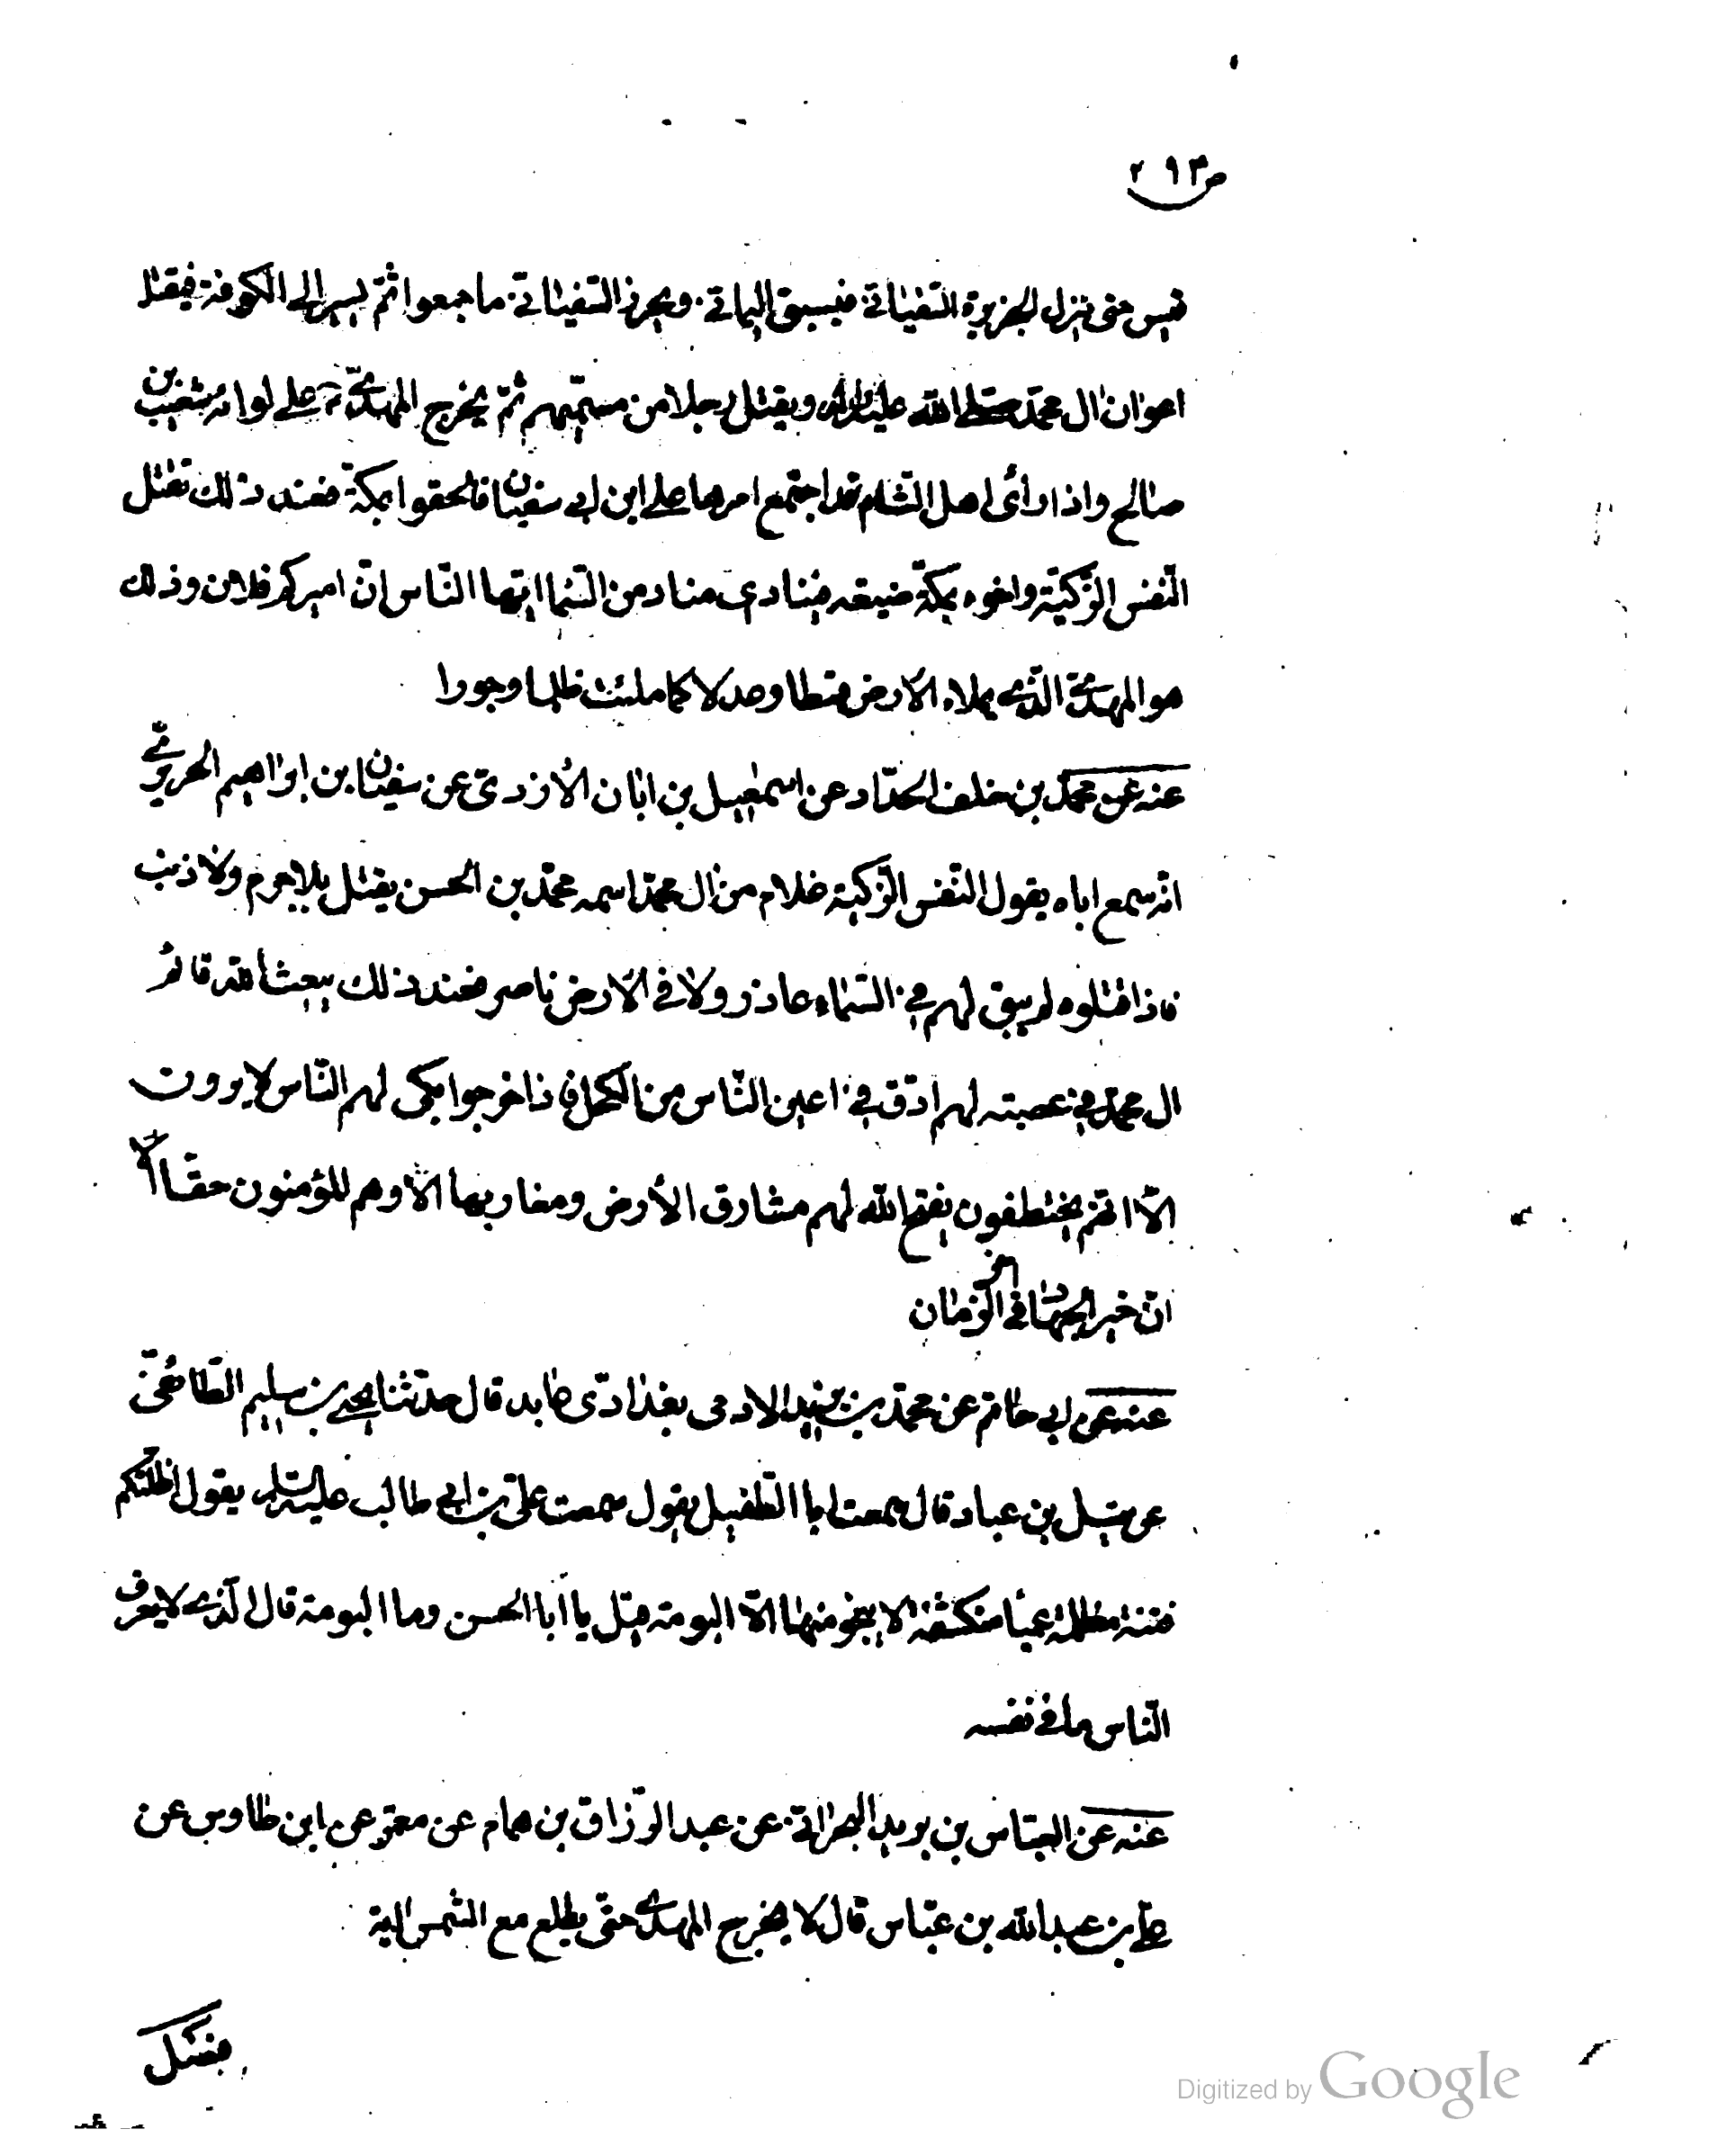 ص ٢٩٣
قيس حتى ينزل الجزيرة السفيانى فيسبق اليمانى ويحرز السفيانى ما جمعوا ثم يسير الى الكوفة فيقتل
اعوان ال محمد صلى الله عليه واله ويقتل رجلا من مسميهم ثم يخرج المهدى على لوائه شعيب بن
صالح واذا رأى اهل الشام قد اجتمع امرها على ابن ابى سفيان فالحقوا بمكة فعند ذلك تقتل
النفس الزكية واخوه بمكة ضيعة فينادى مناد من السماء ايها الناس ان اميركم فلان وذلك
هو المهدى الذى يملاء الارض قسطا وعدلا كما ملئت ظلما وجورا
عنه عن محمد بن خلف الحداد عن اسمعيل بن ابان الأزدى عن سفيان بن ابراهيم الحريرى
انه سمع اباه يقول النفس الزكية غلام من ال محمد اسمه محمد بن الحسن يقتل بلا جرم ولا ذنب
فاذا قتلوه لم يبق لهم فى السماء عاذر ولا فى الارض ناصر فعند ذلك يبعث الله قائم
ال محمد فى عصبته لهم ادق فى اعين الناس من الكحل فاذا خرجوا بكى لهم الناس لا يرون
الا انهم يختطفون يفتح الله لهم مشارق الأرض ومغاربها الا وهم المؤمنون حقا الا
ان خير الجهاد فى اخر الزمان
عنه عن ابى حاتم عن محمد بن يزيد الادمى بغدادى عابد قال حدثنا يحيى بن سليم الطائفى
عن متيل بن عباد قال سمعت ابا الطفيل يقول سمعت على بن ابى طالب عليه السلم يقول اظلتكم
فتنة مظلمة عميا منكشفة لا ينجو منها الا البومة قيل يا ابا الحسن وما البومة قال الذى لا يعرف
الناس ما فى نفسه
عنه عن العباس بن يزيد البحرانى عن عبد الرزاق بن همام عن معمر عن ابن طاوس عن
على بن عبد الله بن عباس قال لا يخرج المهدى حتى يطلع مع الشمس اية
Digitized by Google